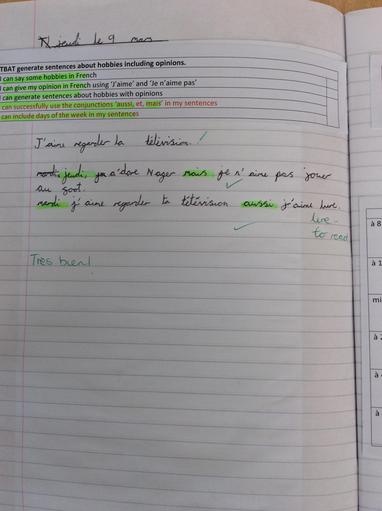 jeudi le 9 mars
TBAT generate sentences about hobbies including opinions.
can say some hobbies in French
can give my opinion in French using 'J'aime' and 'Je n'aime pas'
can generate sentences about hobbies with opinions
can successfully use the conjunctions 'aussi, et, mais' in my sentences
can include days of the week in my sentences
J'aime regarder la télévision.
mardi, jeudi, j'adore Nager mais je n'aime pas jouer
au foot.
mardi j'aime regarder la télévision aussi j'aime lire.
lire -
to read
Tres bien!
à 8
à 1
mi
à
à
à